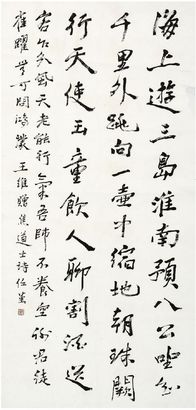 海上遊三島淮南預八公坐知
千里外跳向一壺中縮地朝珠闕
行天使玉童飲人聊割酒送
客乍分風天老能行氣吾師不養空謝君徒
雀躍無可問鴻濛 王維贈焦道士詩